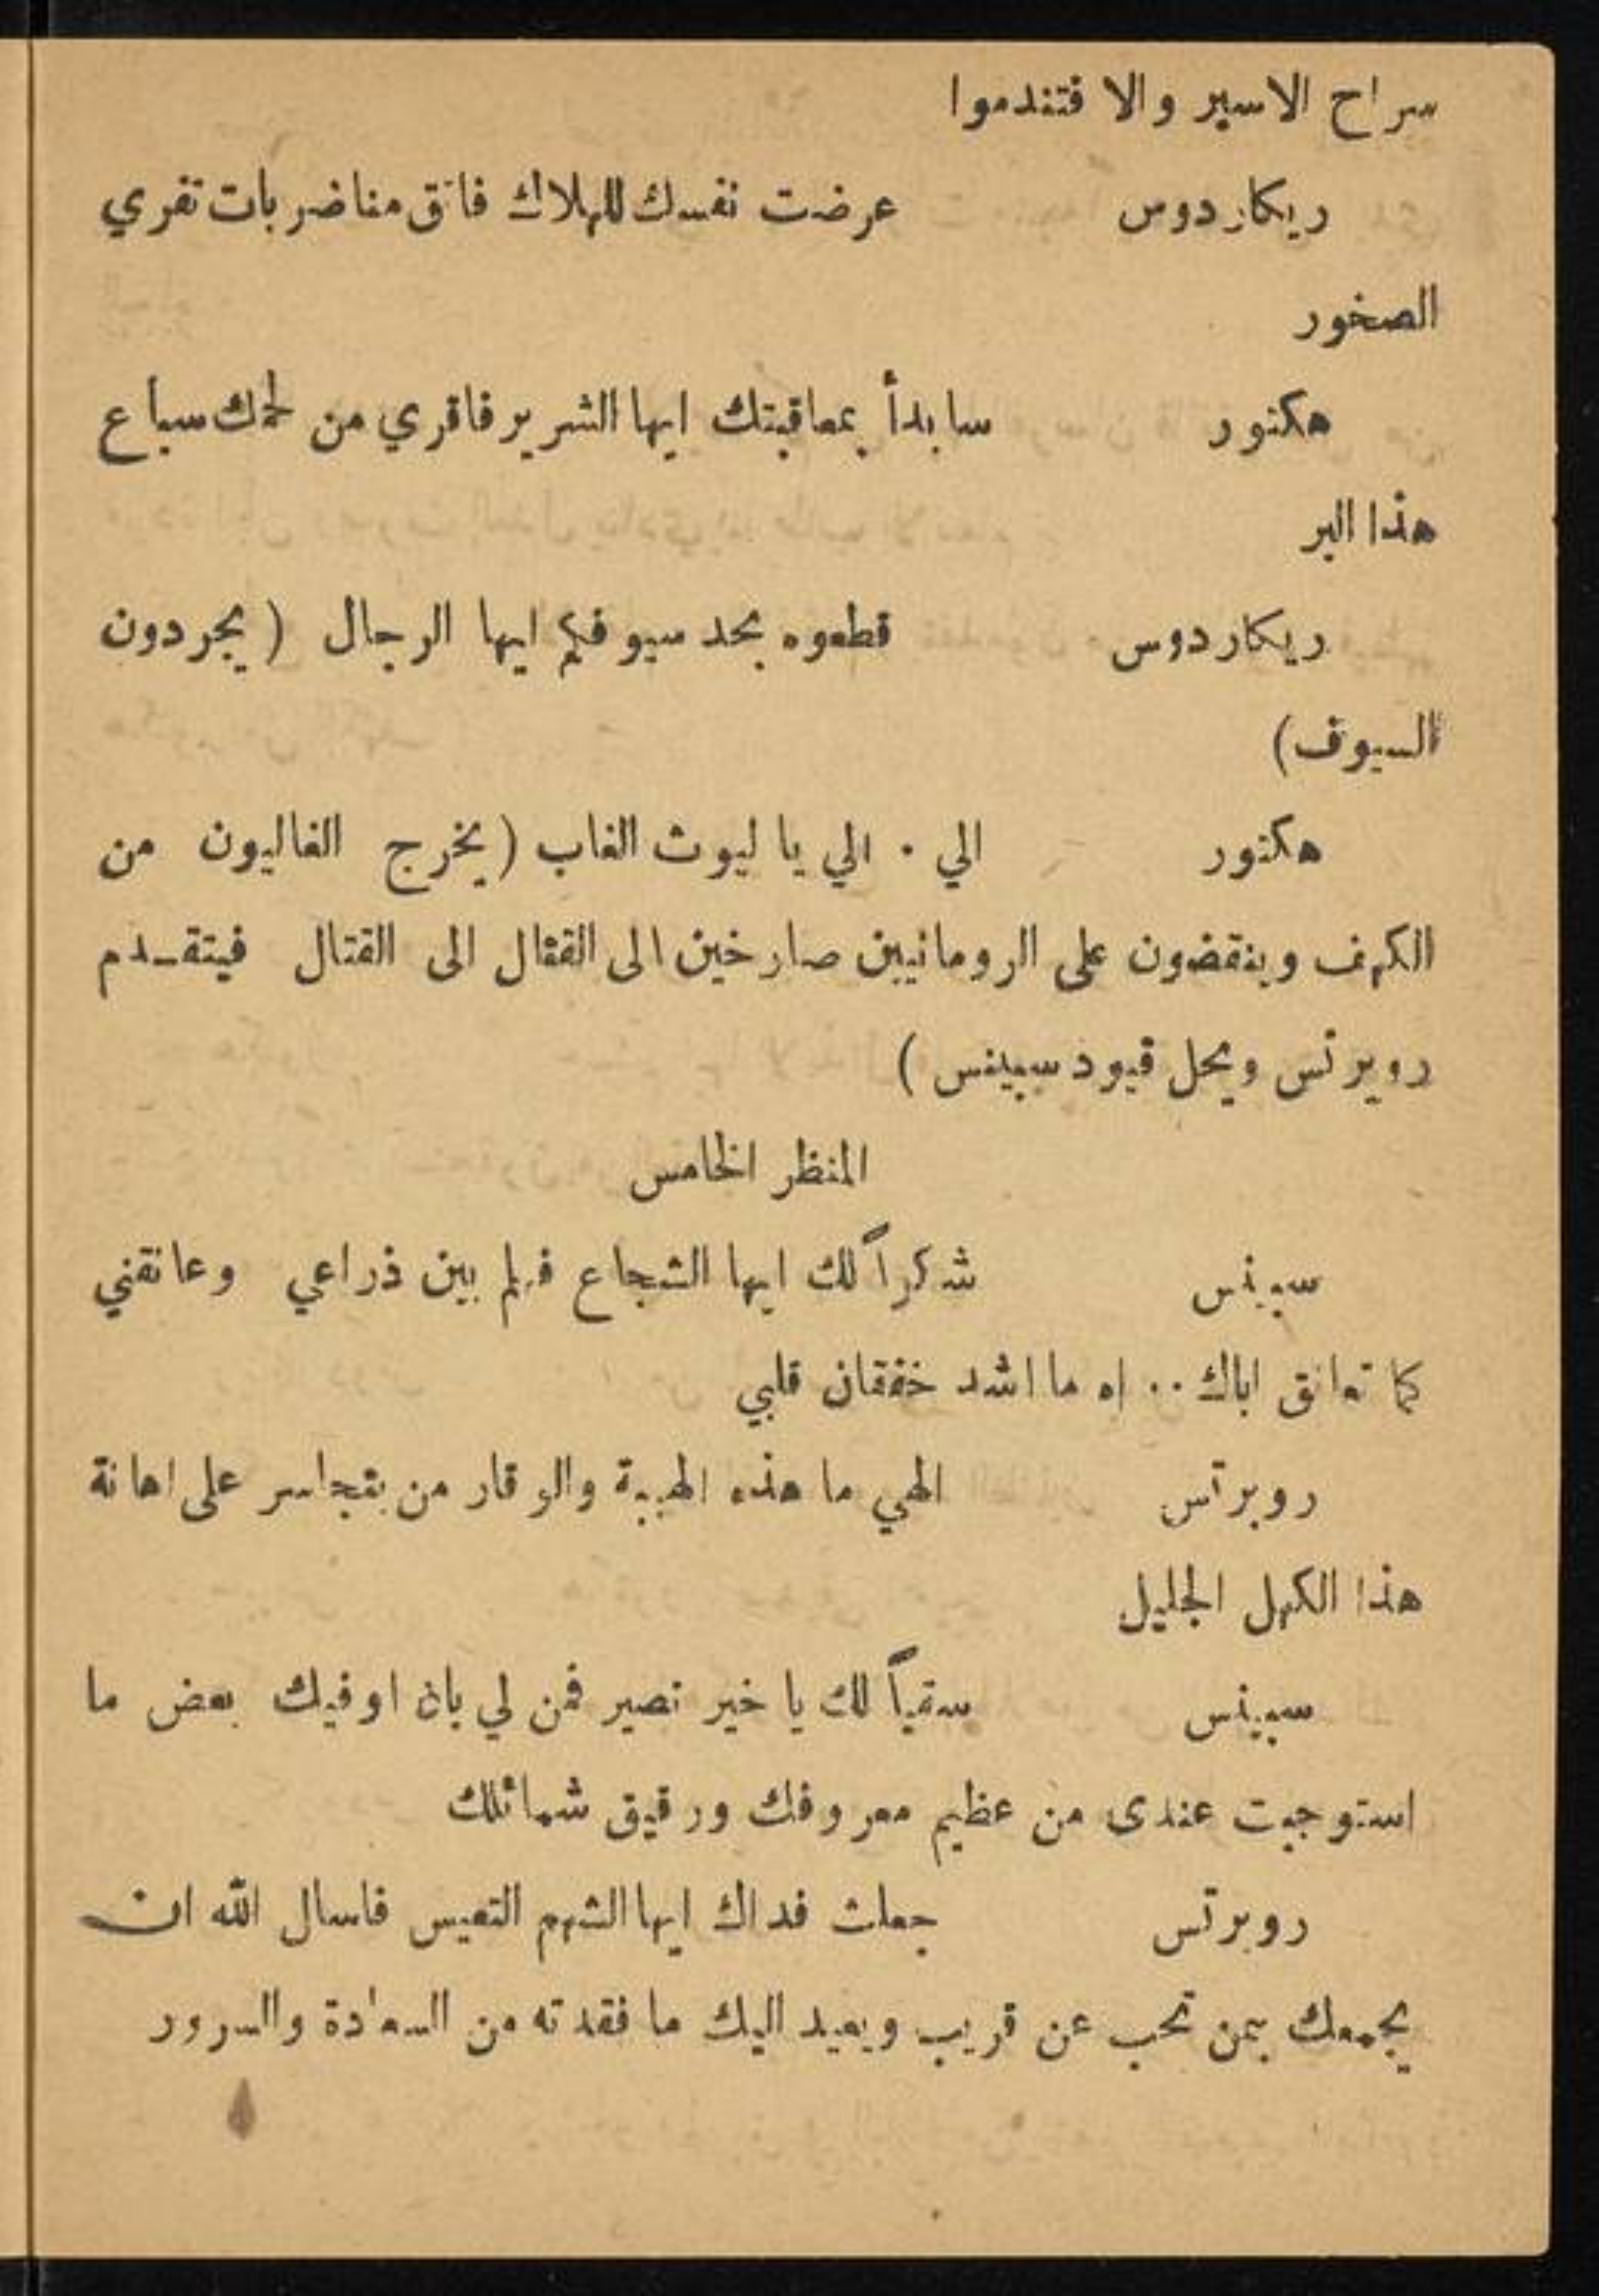 سراح الاسير والا فتندموا
ريكاردوس عرضت نفسك للهلاك فاتق منا ضربات تفري
الصخور
هكتور سابدأ بمعاقبتك ايها الشرير فاقري من لحمك سباع
هذا البر
ريكاردوس قطعوه بحد سيوفكم ايها الرجال (يجردون
السيوف)
هكتور الي . الي يا ليوث الغاب (يخرج الغاليون من
الكهف وينقضون على الرومانيين صارخين الى القتال الى القتال فيتقدم
روبرتس ويحل قيود سبينس)
المنظر الخامس
سبينس شكراً لك ايها الشجاع فهلم بين ذراعي وعانقني
كما تعانق اباك .. اه ما اشد خفقان قلبي
روبرتس الهي ما هذه الهيبة والوقار من يتجاسر على اهانة
هذا الكهل الجليل
سبينس سقياً لك يا خير نصير فمن لي بان اوفيك بعض ما
استوجبت عندى من عظيم معروفك ورقيق شمائلك
روبرتس جعلت فداك ايها الشهم التعيس فاسال الله ان
يجمعك بمن تحب عن قريب ويعيد اليك ما فقدته من السعادة والسرور